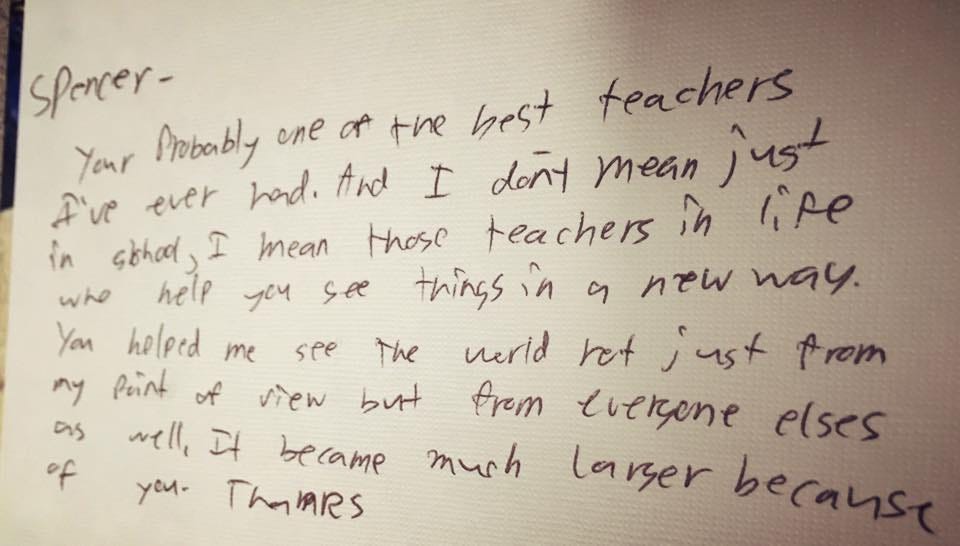 Spencer-
Your Probably one of the best teachers
I've ever had. And I don't mean just
in school, I mean those teachers in life
who help you see things in a new way.
You helped me see The world not just from
my point of view but from everyone elses
as well. It became much larger because
of you. Thanks